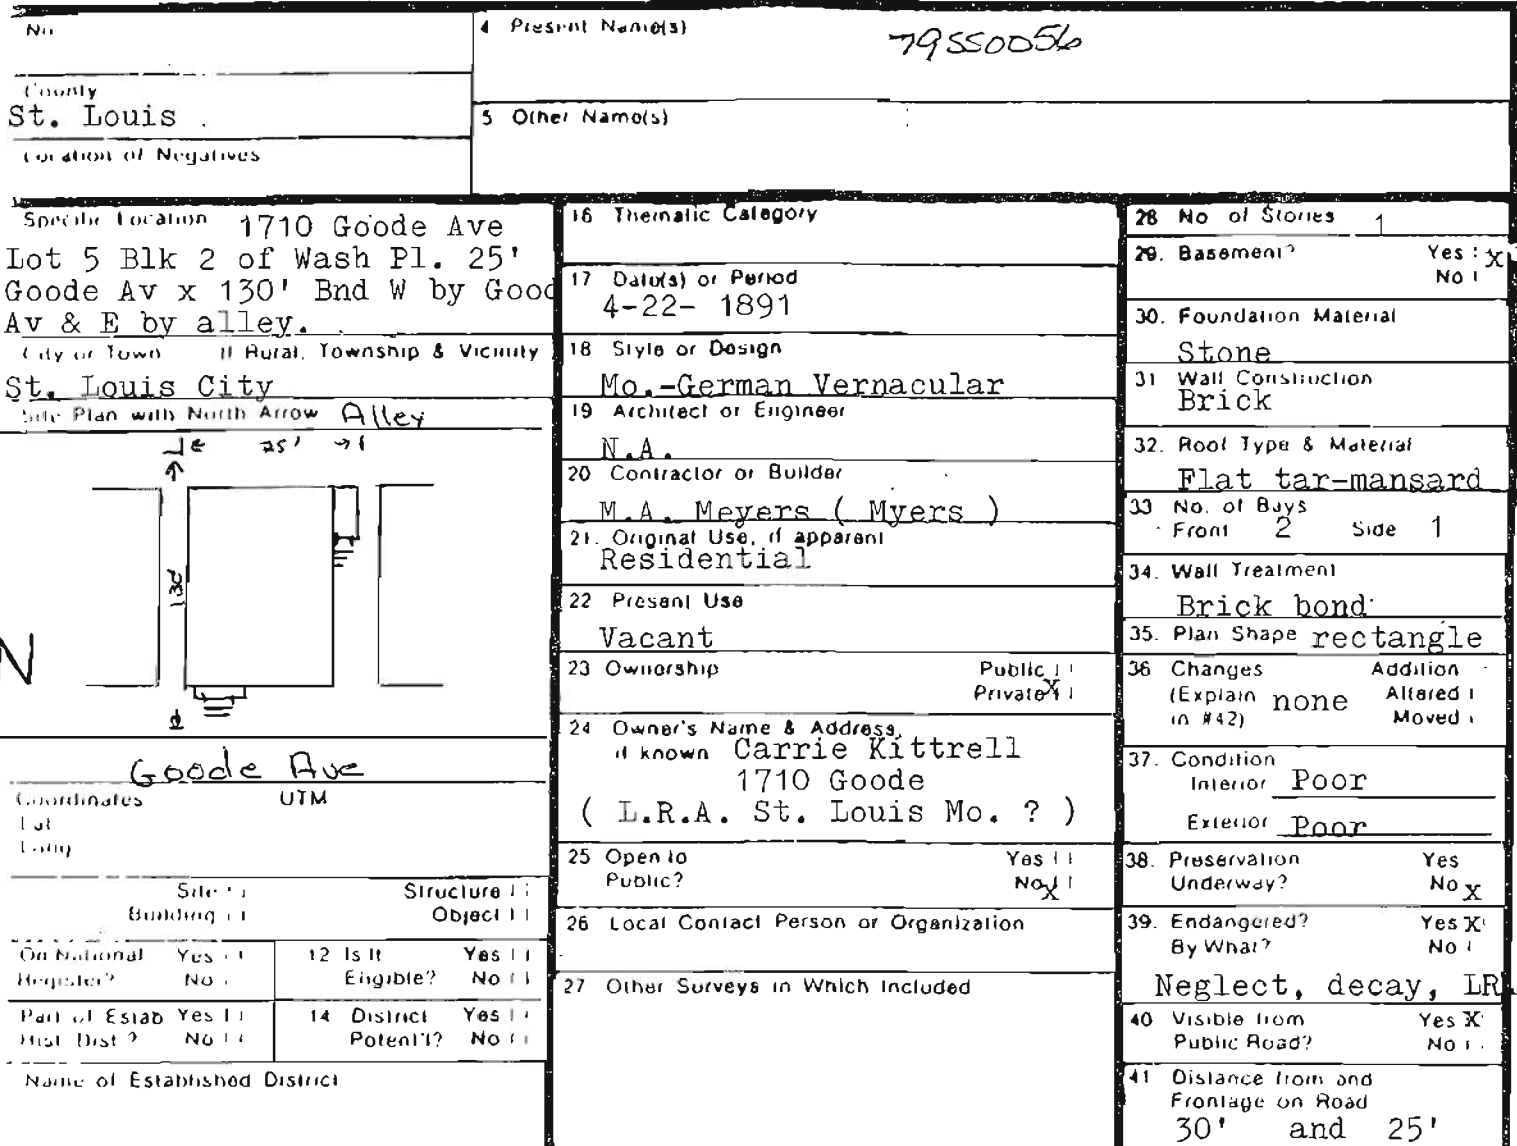 No.
4 Present Name(s)
79SS0056
County
St. Louis
5 Other Name(s)
Location of Negatives
Specific Location 1710 Goode Ave
Lot 5 Blk 2 of Wash Pl. 25'
Goode Av x 130' Bnd W by Good
Av & E by alley.
City or Town If Rural, Township & Vicinity
St. Louis City
Site Plan with North Arrow Alley
25'
130
N
Goode Ave
Coordinates UTM
Lat
Long
Site Structure
Building Object
On National Register? Yes No
12 Is It Eligible? Yes No
Part of Estab Hist. Dist.? Yes No
14 District Potent'l? Yes No
Name of Established District
16 Thematic Category
17 Date(s) or Period
4-22- 1891
18 Style or Design
Mo.-German Vernacular
19 Architect or Engineer
N.A.
20 Contractor or Builder
M.A. Meyers ( Myers )
21. Original Use, if apparent
Residential
22 Present Use
Vacant
23 Ownership Public
Private X
24 Owner's Name & Address,
if known Carrie Kittrell
1710 Goode
( L.R.A. St. Louis Mo. ? )
25 Open to Yes
Public? No X
26 Local Contact Person or Organization
27 Other Surveys in Which Included
28 No of Stories 1
29. Basement? Yes X
No
30. Foundation Material
Stone
31 Wall Construction
Brick
32. Roof Type & Material
Flat tar-mansard
33 No. of Bays
Front 2 Side 1
34. Wall Treatment
Brick bond
35. Plan Shape rectangle
36 Changes Addition
(Explain none Altered
in #42) Moved
37. Condition
Interior Poor
Exterior Poor
38. Preservation Yes
Underway? No X
39. Endangered? Yes X
By What? No
Neglect, decay, LR
40 Visible from Yes X
Public Road? No
41 Distance from and
Frontage on Road
30' and 25'